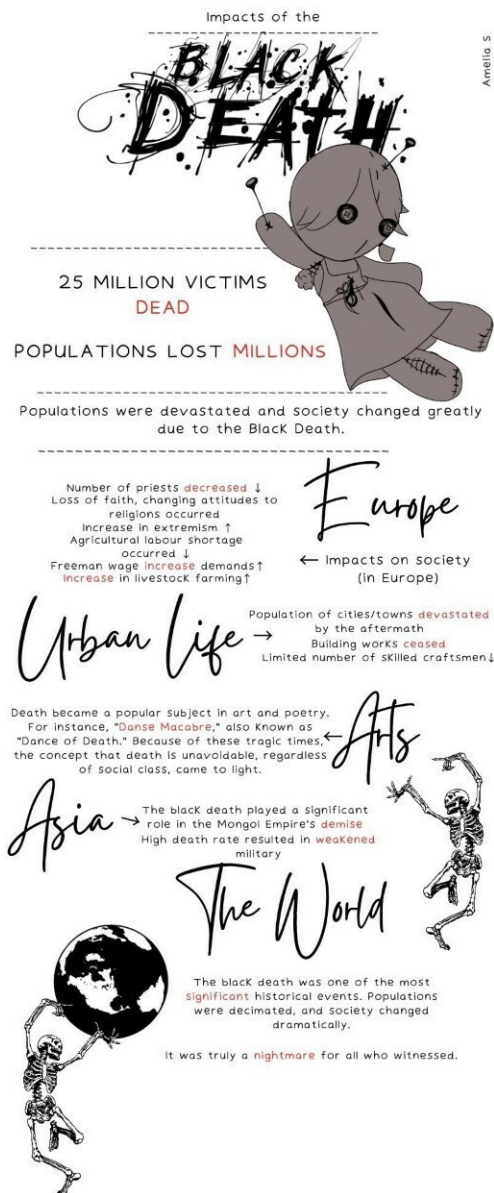 Impacts of the
BLACK
DEATH
Amelia S
25 MILLION VICTIMS
DEAD
POPULATIONS LOST MILLIONS
Populations were devastated and society changed greatly
due to the Black Death.
Europe
← Impacts on society
(in Europe)
Number of priests decreased ↓
Loss of faith, changing attitudes to
religions occurred
Increase in extremism ↑
Agricultural labour shortage
occurred ↓
Freeman wage increase demands↑
Increase in livestock farming↑
Urban Life →
Population of cities/towns devastated
by the aftermath
Building works ceased
Limited number of skilled craftsmen↓
Arts
Death became a popular subject in art and poetry.
For instance, "Danse Macabre," also known as
"Dance of Death." Because of these tragic times, ←
the concept that death is unavoidable, regardless
of social class, came to light.
Asia →
The black death played a significant
role in the Mongol Empire's demise
High death rate resulted in weakened
military
The World
The black death was one of the most
significant historical events. Populations
were decimated, and society changed
dramatically.
It was truly a nightmare for all who witnessed.